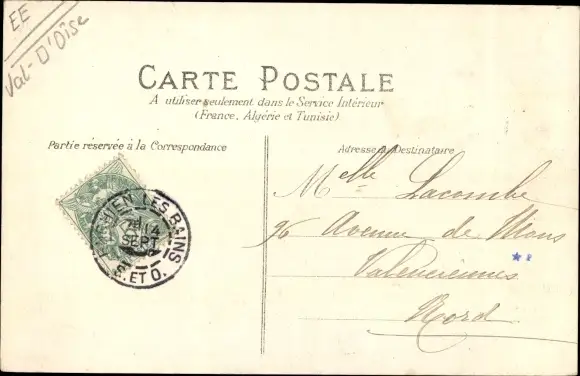 EE
Val-D'Oise
CARTE POSTALE
A utiliser seulement dans le Service Intérieur
(France, Algérie et Tunisie)
Partie réservée à la Correspondance
Adresse du Destinataire
ENGHIEN LES BAINS
14
SEPT
S. ET O.
Melle Lacombe
96 Avenue de Mons
Valenciennes
Nord